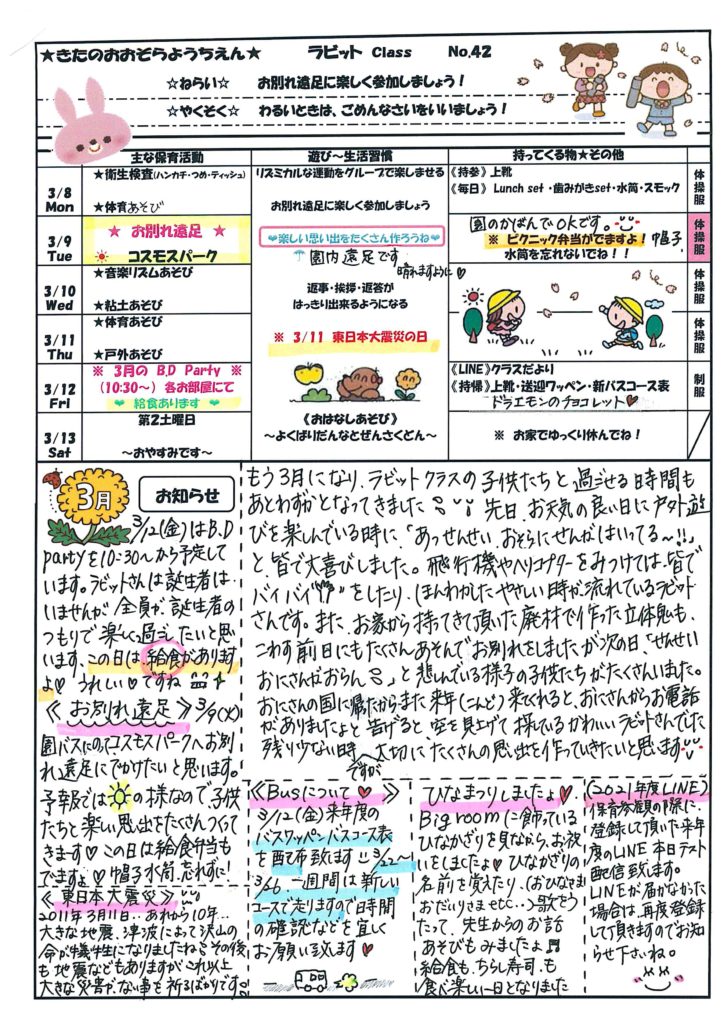 ★きたのおおぞらようちえん★ ラビット Class No.42
☆ねらい☆ お別れ遠足に楽しく参加しましょう！
☆やくそく☆ わるいときは、ごめんなさいをいいましょう！
主な保育活動 遊び～生活習慣 持ってくる物★その他
3/8 Mon
★衛生検査(ハンカチ・つめ・ティッシュ)
★体育あそび
リズミカルな運動をグループで楽しませる
お別れ遠足に楽しく参加しましょう
《持参》上靴
《毎日》 Lunch set ・歯みがきset・水筒・スモック
体操服
3/9 Tue
★ お別れ遠足 ★
コスモスパーク
❤楽しい思い出をたくさん作ろうね❤
園内遠足です
晴れますように♡
園のかばんでOKです。
※ ピクニック弁当がでますよ！帽子、
水筒を忘れないでね！！
体操服
3/10 Wed
★音楽リズムあそび
★粘土あそび
返事・挨拶・返答が
はっきり出来るようになる
体操服
3/11 Thu
★体育あそび
★戸外あそび
※ 3/11 東日本大震災の日
体操服
3/12 Fri
※ 3月の B.D Party ※
(10:30～) 各お部屋にて
❤ 給食あります ❤
《LINE》クラスだより
《持帰》上靴・送迎ワッペン・新バスコース表
ドラエモンのチョコレット♥
制服
3/13 Sat
第2土曜日
～おやすみです～
《おはなしあそび》
～よくばりだんなとぜんさくどん～
※ お家でゆっくり休んでね！
3月 お知らせ
3/12(金)はB.D
partyを10:30～から予定して
います。ラビットさんは誕生者は
いませんが全員が誕生者の
つもりで楽しく過ごしたいと思
います。この日は給食があります
よ♡ うれしい♡ですね
《お別れ遠足》3/9(火)
園バスにのってコスモスパークへお別
れ遠足にでかけたいと思います。
予報では の様なので子供
たちと楽しい思い出をたくさんつくって
きます♡この日は給食弁当も
でます。帽子水筒、忘れずに！
《東日本大震災》
2011年3月11日…あれから10年…
大きな地震、津波によって沢山の
命が犠牲になりましたね。その後
も地震などもありますがこれ以上
大きな災害がない事を祈るばかりです。
もう3月になり、ラビットクラスの子供たちと過ごせる時間も
あとわずかとなってきました 先日、お天気の良い日に戸外遊
びを楽しんでいる時に、「あっせんせい、おそらにせんがはいってる～!!」
と、皆で大喜びしました。飛行機やヘリコプターをみつけては、皆で
バイバイ をしたり、ほんわかした やさしい時が流れているラビット
さんです。また、お家から持ってきて頂いた廃材で作った立体鬼も、
こわす前日にもたくさんあそんでお別れをしましたが次の日、「せんせい
おにさんがおらん 」と悲しんでいる様子の子供たちがたくさんいました。
おにさんの国に帰ったからまた来年(こんど)来てくれると、おにさんからお電話
がありましたよと告げると、空を見上げて探しているかわいいラビットさんでした
残り少ない時ですが、大切に、たくさんの思い出を作っていきたいと思います
《Busについて♥》
3/12(金)来年度の
バスワッペン バスコース表
を配布致します 3/22～
3/26、一週間は新しい
コースで走りますので時間
の確認などを宜しく
お願い致します♥
ひなまつりしましたよ♥
Big roomに飾っている
ひなかざりを見ながら、お祝
いをしましたよ♡ひなかざりの
名前を覚えたり、(おひなさま
おだいりさまetc…)歌をう
たって、先生からのお話
あそびもみましたよ♬
給食も、ちらし寿司も
食べ楽しい一日となりました
(2021年度LINE)
保育参観の際に、
登録して頂いた来年
度のLINE本日テスト
配信致します。
LINEが届かなかった
場合は、再度登録
して頂きますのでお知
らせ下さいね。